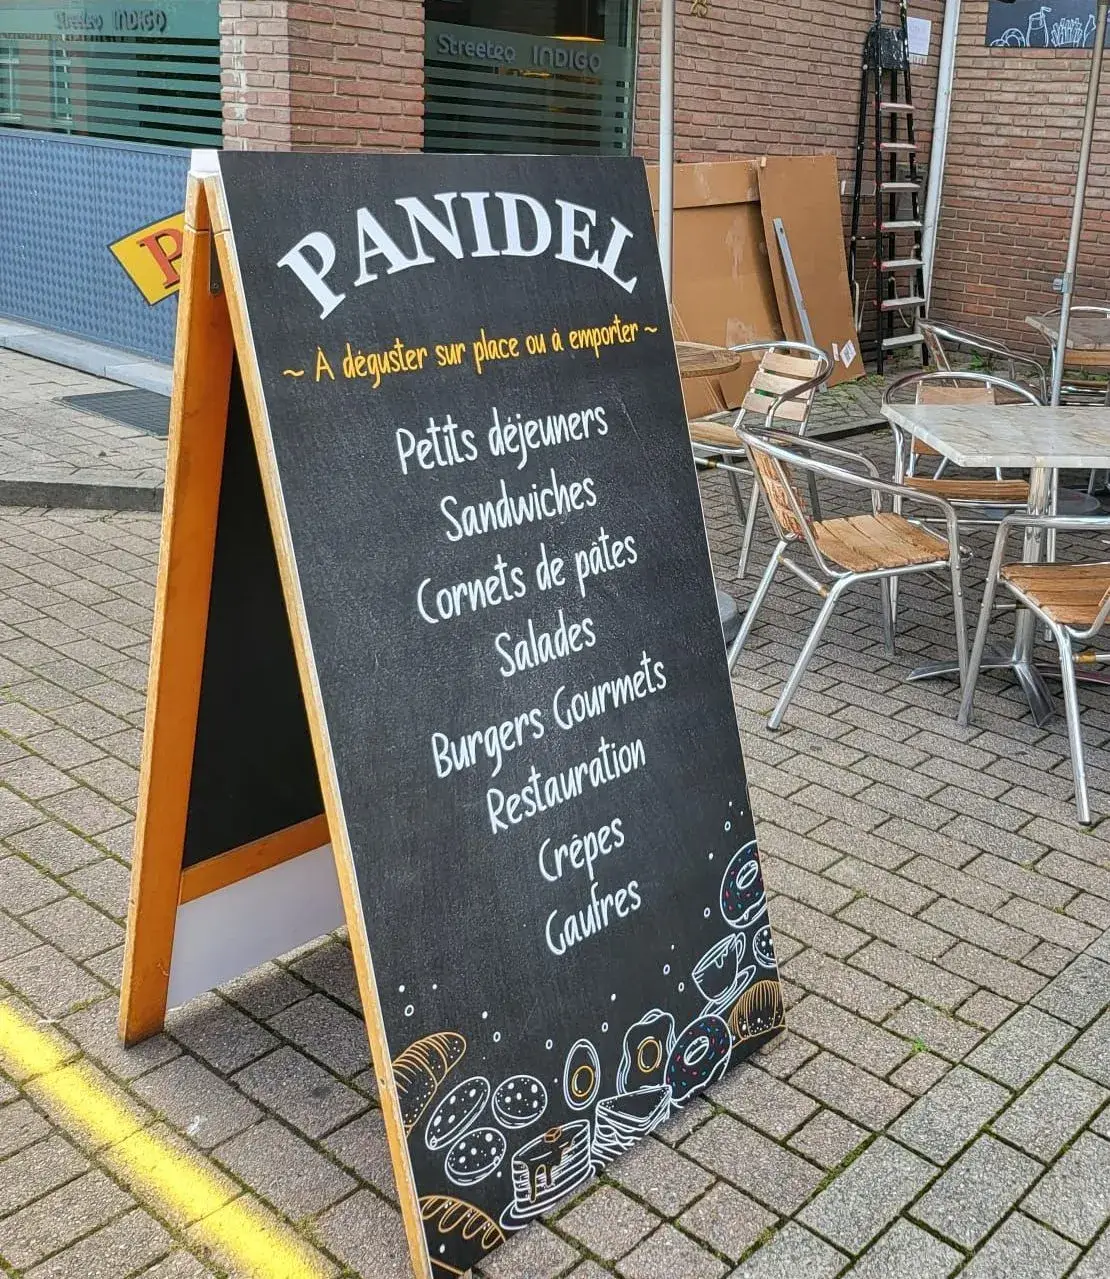 Streeteo INDIGO
Streeteo INDIGO
PANIDEL
~ À déguster sur place ou à emporter ~
Petits déjeuners
Sandwiches
Cornets de pâtes
Salades
Burgers Gourmets
Restauration
Crêpes
Gaufres
P